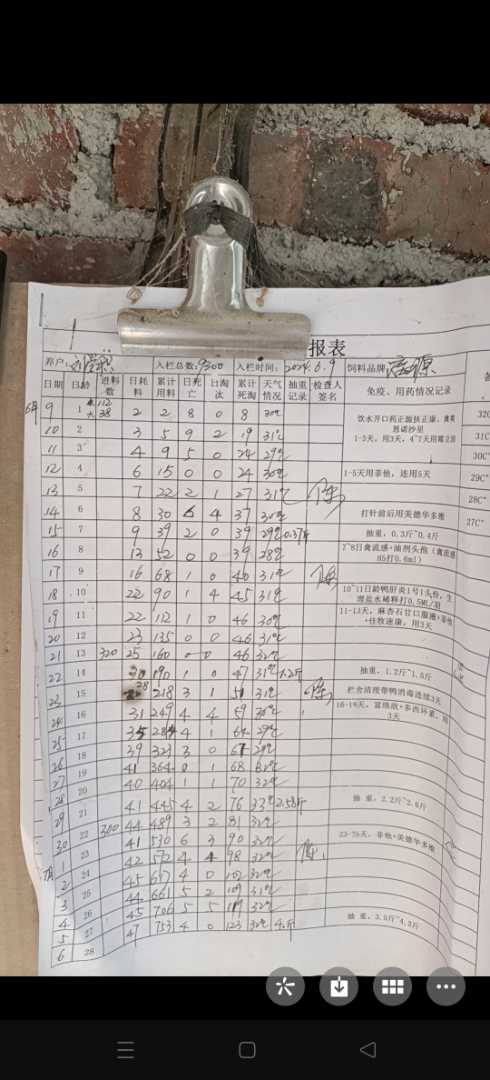 报表
养户: 入栏总数:9300 入栏时间:2024.6.9 饲料品牌
日期 日龄 进料数 日耗料 累计用料 日死亡 日淘汰 累计死淘 天气情况 抽重记录 检查人签名 免疫、用药情况记录
6月 9 1 112 38 2 2 8 0 8 30℃ 饮水开口药正源扶正康、禽莫恩诺沙星 32C
10 2 3 5 9 2 19 31℃ 1-3天,用3天,4~7天用霉立清 31C
11 3 4 9 5 0 24 29℃ 30C°
12 4 6 15 0 0 24 30℃ 1-5天用菲他,连用5天 29C°
13 5 7 22 2 1 27 31℃ 陈 28C°
14 6 8 30 6 4 37 30℃ 打针前后用美德华多维 27C°
15 7 9 39 2 0 39 29℃ 0.37斤 抽重,0.3斤~0.4斤
16 8 13 52 0 0 39 28℃ 7~8日禽流感·油剂头孢(禽流感H5打0.6ml)
17 9 16 68 1 0 40 31℃ 陈
18 10 22 90 1 4 45 31℃ 10~11日龄鸭肝炎1号1头份,生理盐水稀释打0.5ML/羽
19 11 22 112 1 0 46 30℃ 11-13天,麻杏石甘口服液+菲他
20 12 23 135 0 0 46 31℃ 用3天
21 13 320 25 160 0 0 46 32℃
22 14 30 190 1 0 47 31℃ 1.2斤 抽重,1.2斤~1.5斤
23 15 28 218 3 1 51 31℃ 陈 栏舍清理带鸭消毒连续3天
24 16 31 249 4 4 59 30℃ 16-19天,
25 17 35 284 4 1 64 29℃ 3天
26 18 39 323 3 0 67 29℃
27 19 41 364 0 1 68 32℃
28 20 40 404 1 1 70 32℃
29 21 41 445 4 2 76 33℃ 2.58斤 抽重,2.2斤~2.6斤
30 22 300 44 489 3 2 81 32℃
7月 1 23 41 530 6 3 90 32℃ 陈 菲他+美德华多维
2 24 42 572 4 4 98 32℃
3 25 45 617 4 0 102 32℃
4 26 44 661 5 2 109 31℃
5 27 45 706 5 5 119 32℃ 抽重,3.5斤~4.2斤
6 28 47 753 4 0 123 32℃ 4斤